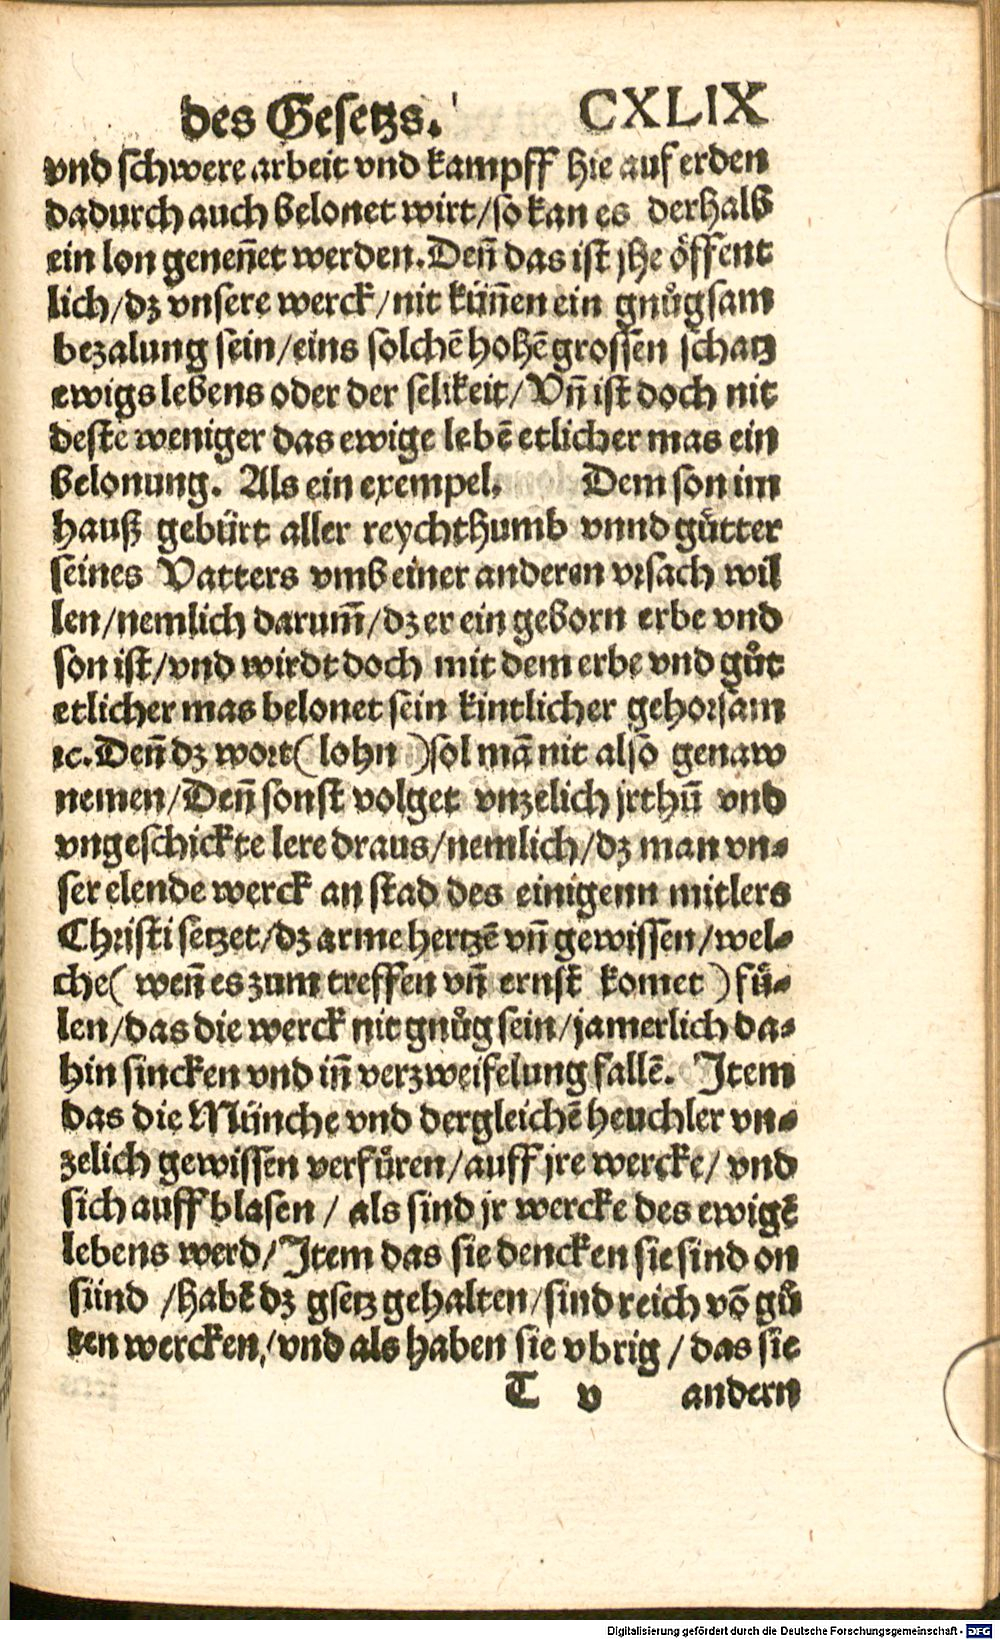 des Gesetzs. CXLIX
vnd schwere arbeit vnd kampff hie auf erden
dadurch auch belonet wirt/so kan es derhalb
ein lon genen̄et werden. Den̄ das ist jhe öffent
lich/dz vnsere werck/nit kün̄en ein gnůgsam
bezalung sein/eins solchē hohē grossen schatz
ewigs lebens oder der selikeit/Vn̄ ist doch nit
deste weniger das ewige lebē etlicher mas ein
belonung. Als ein exempel. Dem son im
hauß gebürt aller reychthumb vnnd gütter
seines Vatters vmb einer anderen vrsach wil
len/nemlich darum̄/dz er ein geborn erbe vnd
son ist/vnd wirdt doch mit dem erbe vnd gůt
etlicher mas belonet sein kintlicher gehorsam
ꝛc. Den̄ dz wort( lohn )sol mā nit also genaw
nemen/Den̄ sonst volget vnzelich jrthū vnd
vngeschickte lere draus/nemlich/dz man vn⸗
ser elende werck an stad des einigenn mitlers
Christi setzet/dz arme hertzē vn̄ gewissen/wel⸗
che( wen̄ es zum treffen vn̄ ernst komet )fü⸗
len/das die werck nit gnůg sein/jamerlich da⸗
hin sincken vnd in̄ verzweifelung fallē. Item
das die Münche vnd dergleichē heuchler vn⸗
zelich gewissen verfüren/auff jre wercke/ vnd
sich auff blasen / als sind jr wercke des ewigē
lebens werd/Item das sie dencken sie sind on
sünd /habē dz gsetz gehalten/sind reich vō gů
ten wercken/vnd als haben sie vbrig / das sie
T v andern
Digitalisierung gefördert durch die Deutsche Forschungsgemeinschaft - DFG